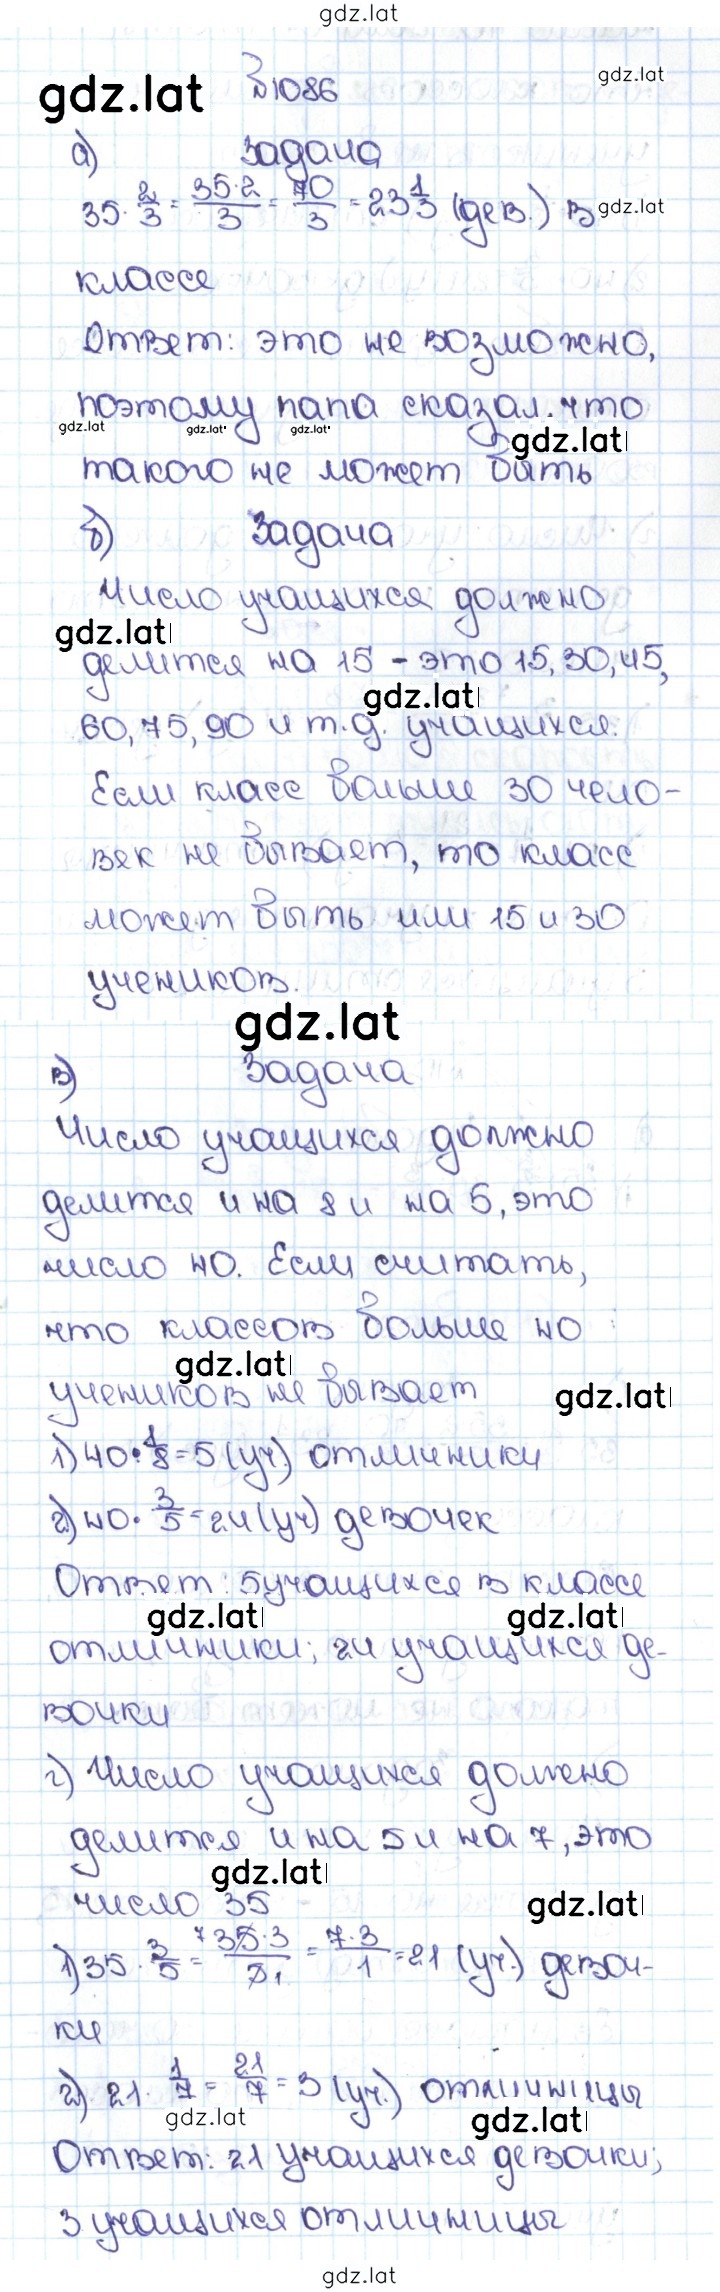 gdz.lat
gdz.lat №1086 gdz.lat
а) Задача
35·2/3=35·2/3=70/3=23 1/3 (дев.) в gdz.lat
классе
Ответ: это не возможно,
поэтому папа сказал. что
gdz.lat gdz.lat gdz.lat gdz.lat
такого не может быть
б) Задача
Число учащихся должно
gdz.lat
делится на 15 - это 15, 30, 45,
gdz.lat
60, 75, 90 и т.д. учащихся.
Если класс больше 30 чело-
век не бывает, то класс
может быть или 15 и 30
учеников.
gdz.lat
в) Задача
Число учащихся должно
делится и на 8 и на 5, это
число 40. Если считать,
что классов больше 40
gdz.lat
учеников не бывает gdz.lat
1) 40·1/8=5 (уч.) отличники
2) 40·3/5=24 (уч) девочек
Ответ: 5 учащихся в классе
gdz.lat gdz.lat
отличники; 24 учащихся де-
вочки
г) Число учащихся должно
делится и на 5 и на 7, это
gdz.lat
число 35 gdz.lat
1) 35·3/5= 7 35·3/5 1 = 7·3/1 =21 (уч.) девоч-
ки
2) 21·1/7=21/7=3 (уч.) отличницы
gdz.lat gdz.lat
Ответ: 21 учащихся девочки;
3 учащихся отличницы
gdz.lat